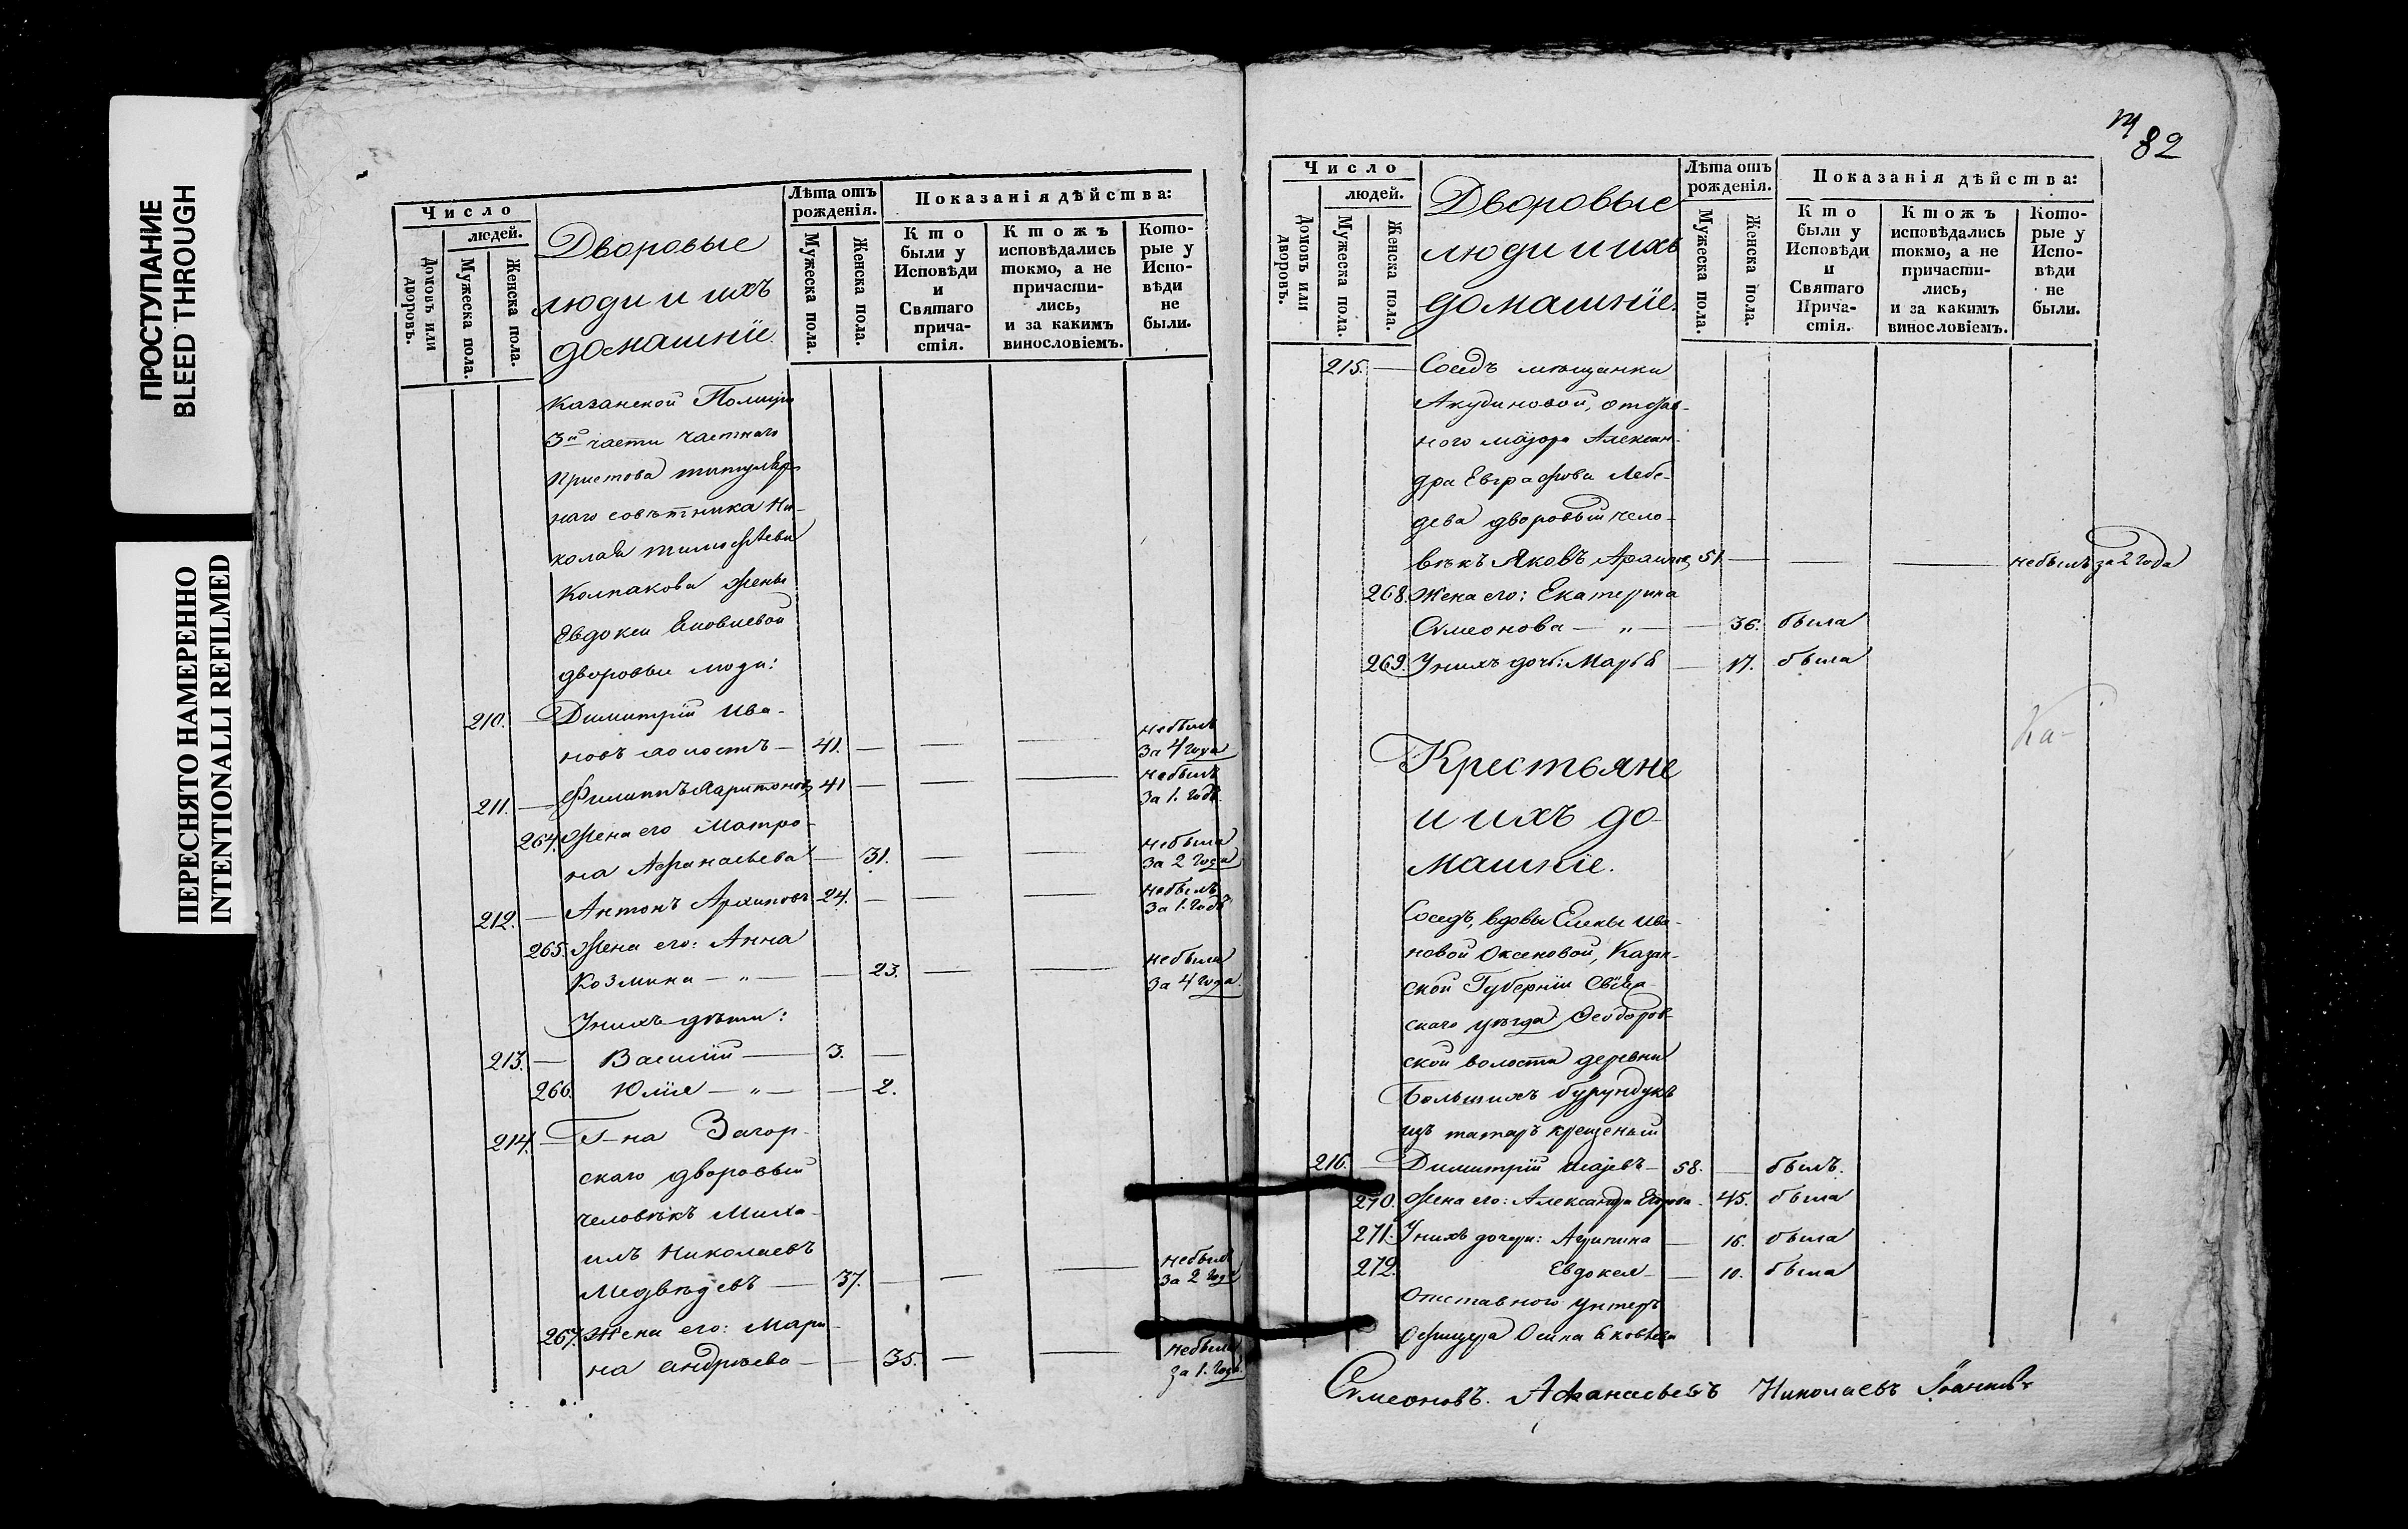 ПРОСТУПАНИЕ
BLEED THROUGH
ПЕРЕСНЯТО НАМЕРЕННО
INTENTIONALLI REFILMED
Число
людей.
Домовъ или дворовъ.
Мужеска пола.
Женска пола.
Дворовые
люди и ихъ
домашніе.
Лѣта отъ
рожденія.
Мужеска пола.
Женска пола.
Показанія дѣйства:
Кто
были у
Исповѣди
и
Святаго
прича-
стія.
Ктожъ
исповѣдались
токмо, а не
причасти-
лись,
и за какимъ
винословіемъ.
Кото-
рые у
Испо-
вѣди
не
были.
Казанской Полиціи
3й части частнаго
Пристова титуляр-
наго совѣтника Ни-
колая Тимофѣева
Колпакова жены
Евдокеи Яковлевой
дворовые люди:
210. — Димитрій Ива-
новъ холостъ — 41. — — — небылъ за 4 года
211. — Филиппъ Харитоновъ 41 — — — небылъ за 1. годъ
264. Жена его Матро-
на Афанасьева — 31. — — небыла за 2 года
212. — Антонъ Архиповъ 24. — — — небылъ за 1. годъ
265. Жена его: Анна
Козмина — „ — — 23. — — небыла за 4 года
У нихъ дѣти:
213. — Василій — 3. —
266. Юлія — „ — — 2.
214. — Г-на Загор-
скаго дворовый
человѣкъ Миха-
илъ Николаевъ
Медвѣдевъ — 37. — — — небылъ за 2 года
267. Жена его: Мари-
на Андрѣева — — 35. — — небыла за 1. годъ.
82
Число
людей.
Домовъ или дворовъ.
Мужеска пола.
Женска пола.
Дворовые
люди и ихъ
домашніе.
Лѣта отъ
рожденія.
Мужеска пола.
Женска пола.
Показанія дѣйства:
Кто
были у
Исповѣди
и
Святаго
Прича-
стія.
Ктожъ
исповѣдались
токмо, а не
причасти-
лись,
и за какимъ
винословіемъ.
Кото-
рые у
Испо-
вѣди
не
были.
215. — Сосѣдъ мѣщанки
Акудиновой, отстав-
ного маіора Алексан-
дра Евграфова Лебе-
дева дворовый чело-
вѣкъ Яковъ Архиповъ 51. — — — небылъ за 2 года
268. Жена его: Екатерина
Симеонова — „ — — 36. была
269. У нихъ дочь: Марья — 17. была
Ка-
Крестьяне
и ихъ до-
машніе.
Сосѣдъ, вдовы Елены Ива-
новой Оксеновой, Казан-
ской Губерніи Свіяж-
скаго уѣзда
ской волости деревни
Большихъ Бурундукъ
изъ татаръ крещеный
216. — Димитрій — 58. — былъ.
270. Жена его: Александра — 45. была
271. У нихъ дочери: Агрипина — 16. была
272. Евдокея — — 10. была
Отставного унтеръ
Офицера Осипа Яковлева
Симеоновъ. Афанасьевъ Николаевъ